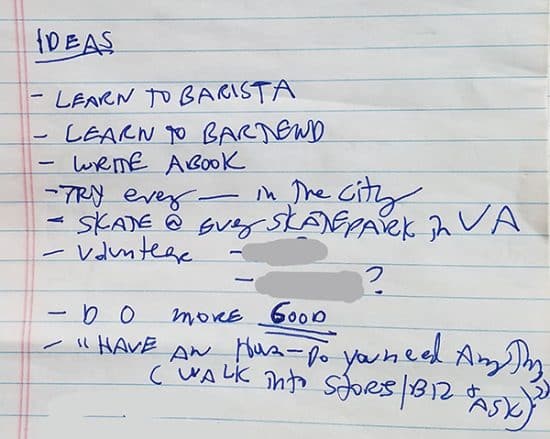 IDEAS
- LEARN TO BARISTA
- LEARN TO BARTEND
- WRITE A BOOK
- TRY every — in The City
- SKATE @ Every SKATEPARK in VA
- Volunteer -
- ?
- DO MORE GOOD
- "HAVE AN Hour - Do you need Anything
( WALK into STORES/BIZ + ASK)?"